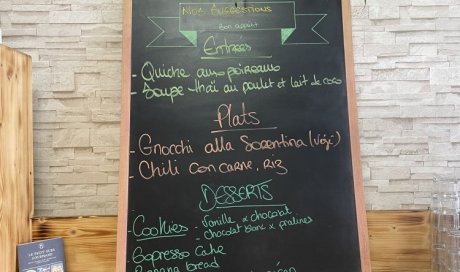 Nos Suggestions
Bon appétit
Entrées
- Quiche aux poireaux
- Soupe thaï au poulet et lait de coco
Plats
- Gnocchi alla Sorentina (végé)
- Chili con carne, riz
DESSERTS
- Cookies - Vanille x chocolat
chocolat blanc x pralines
Espresso cake
Banana bread